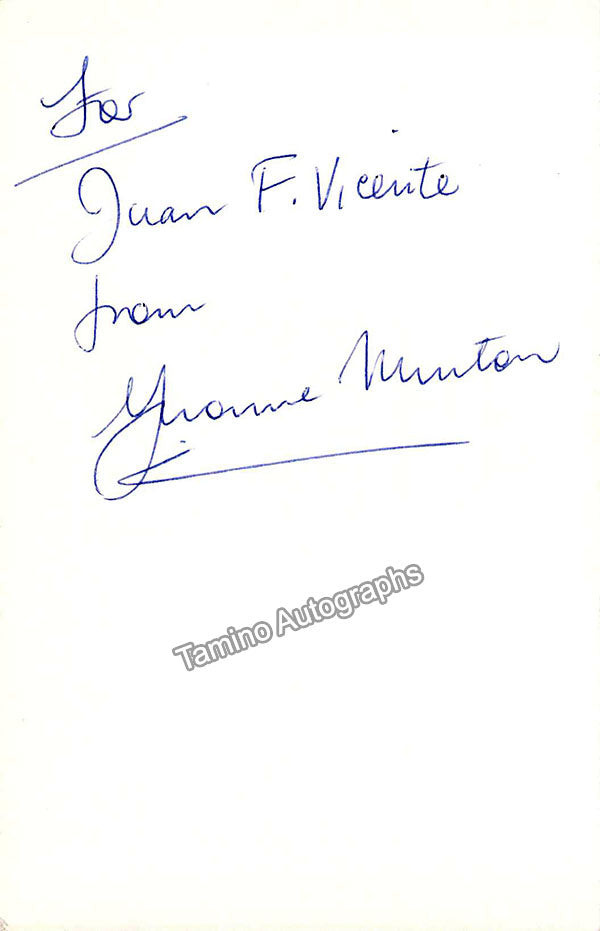 For
Juan F. Vicente
from
Yvonne Minton
Tamino Autographs